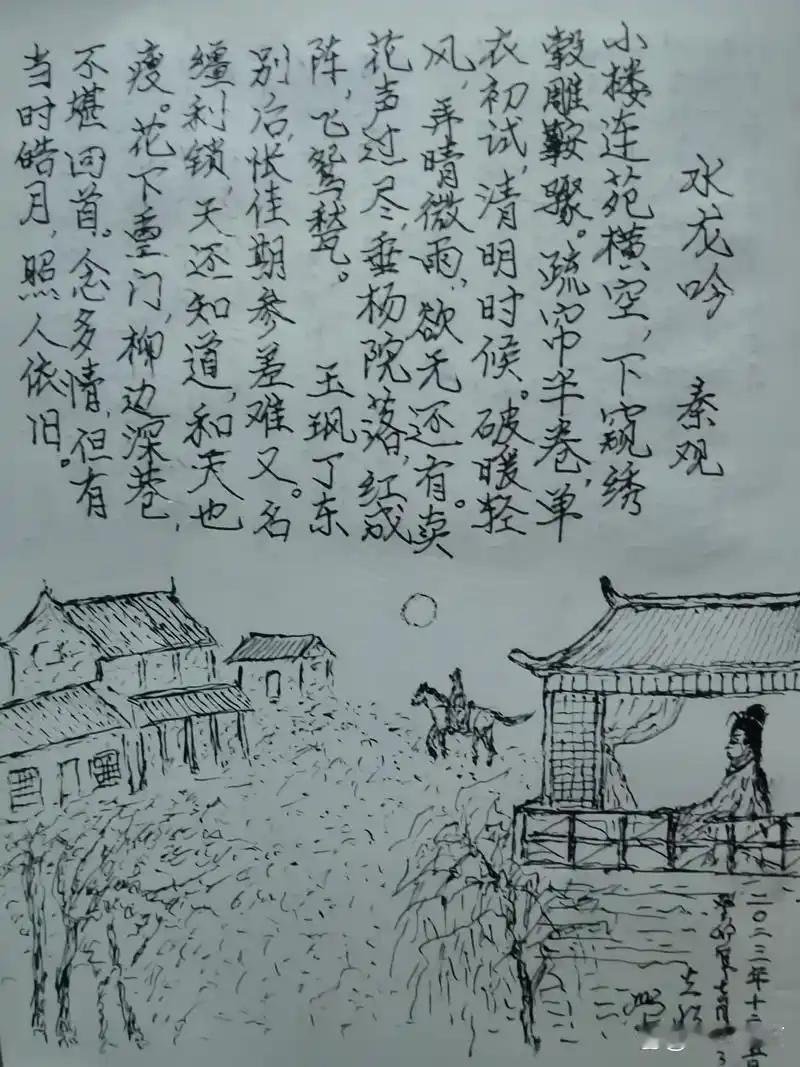 水龙吟 秦观
小楼连苑横空，下窥绣
毂雕鞍骤。疏帘半卷，单
衣初试，清明时候。破暖轻
风，弄晴微雨，欲无还有。卖
花声过尽，垂杨院落，红成
阵，飞鸳甃。 玉珮丁东
别后，怅佳期参差难又。名
缰利锁，天还知道，和天也
瘦。花下重门，柳边深巷，
不堪回首。念多情，但有
当时皓月，照人依旧。
二〇二三年十二